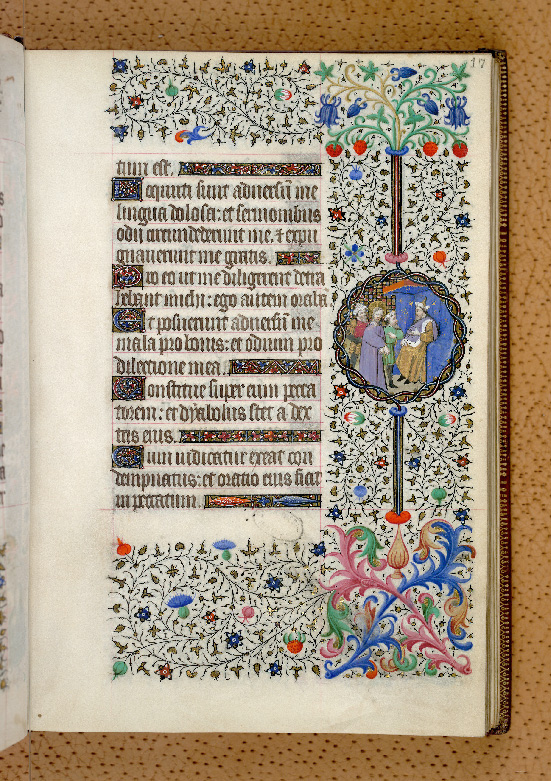 17
tum est.
Locuti sunt adversum me
lingua dolosa: et sermonibus
odii circundederunt me, et expu
gnaverunt me gratis.
Pro eo ut me diligerent detra
hebant michi: ego autem oraba
Et posuerunt adversum me
mala pro bonis: et odium pro
dilectione mea.
Constitue super eum pecca
torem: et dyabolus stet a dex
tris eius.
Cum iudicatur exeat con
dempnatus: et oratio eius fiat
in peccatum.